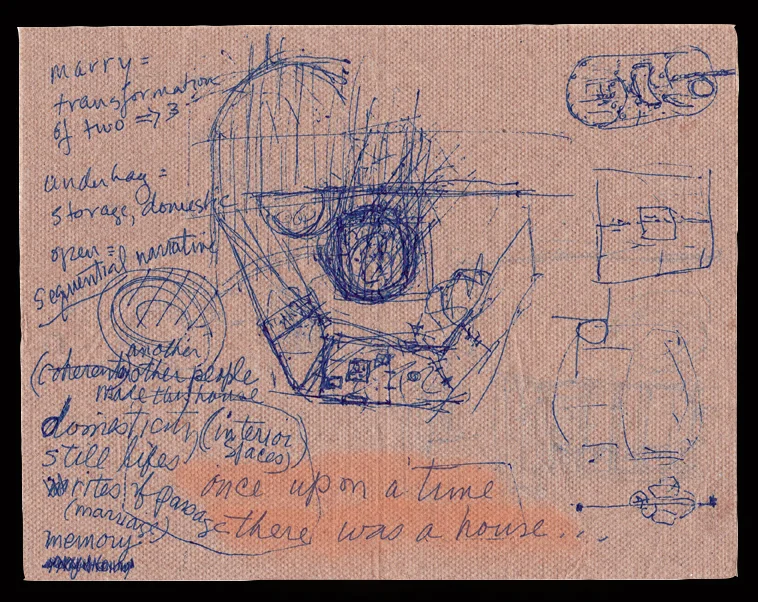 marry =
transformation
of two => 3
storage, domestic
open =
sequential narrative
another
(coherent other people
made this house
domesticity (interior
spaces)
still lifes
rites of passage
(marriage)
memory
once upon a time
there was a house...